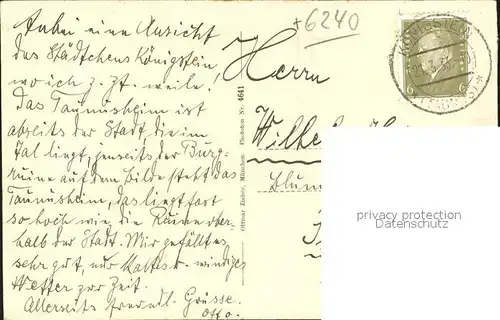 Anbei eine Ansicht
des Städtchens Königstein,
wo ich z. Zt. weile!
Das Taunusheim ist
abseits der Stadt, die im
Tal liegt, jenseits der Burg-
ruine auf dem Bilde steht das
Taunusheim, das liegt fast
so hoch wie die Ruine ober-
halb der Stadt. Mir gefällt es
sehr gut, nur kaltes u. windiges
Wetter zur Zeit.
Allerseits freundl. Grüsse.
Otto.
Ottmar Zieher, München. Phototon Nr. 4641
+6240
Herrn
Wilhe
Blum
6 6
KÖNIGSTEIN
(TAUNUS)
privacy protection
Datenschutz